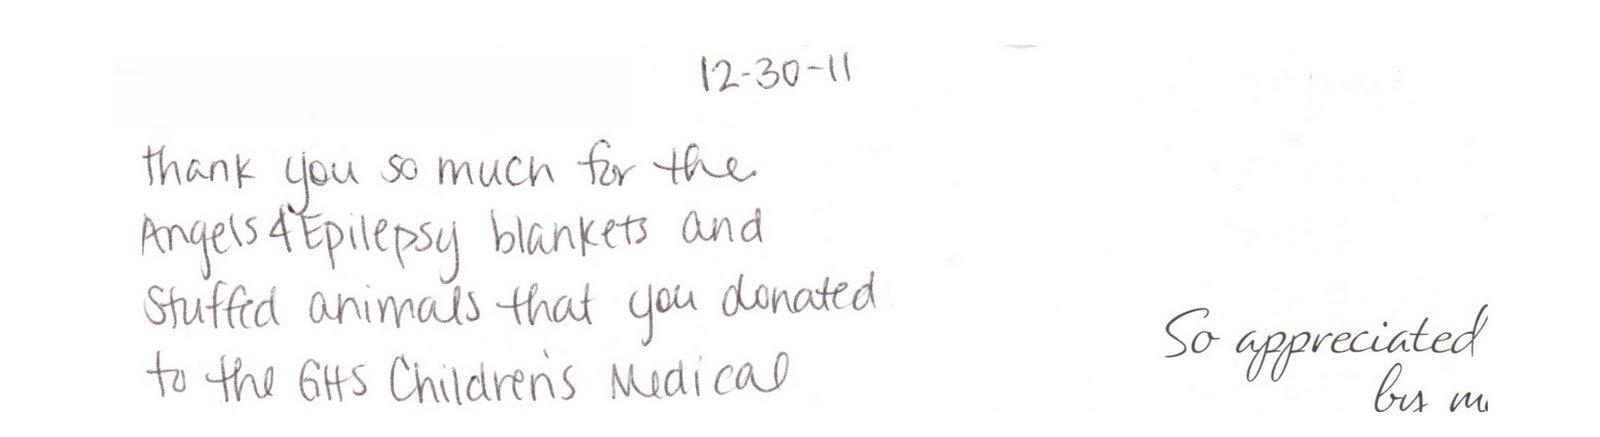 12-30-11
thank you so much for the
Angels4Epilepsy blankets and
stuffed animals that you donated
to the GHS Children's Medical
So appreciated
by